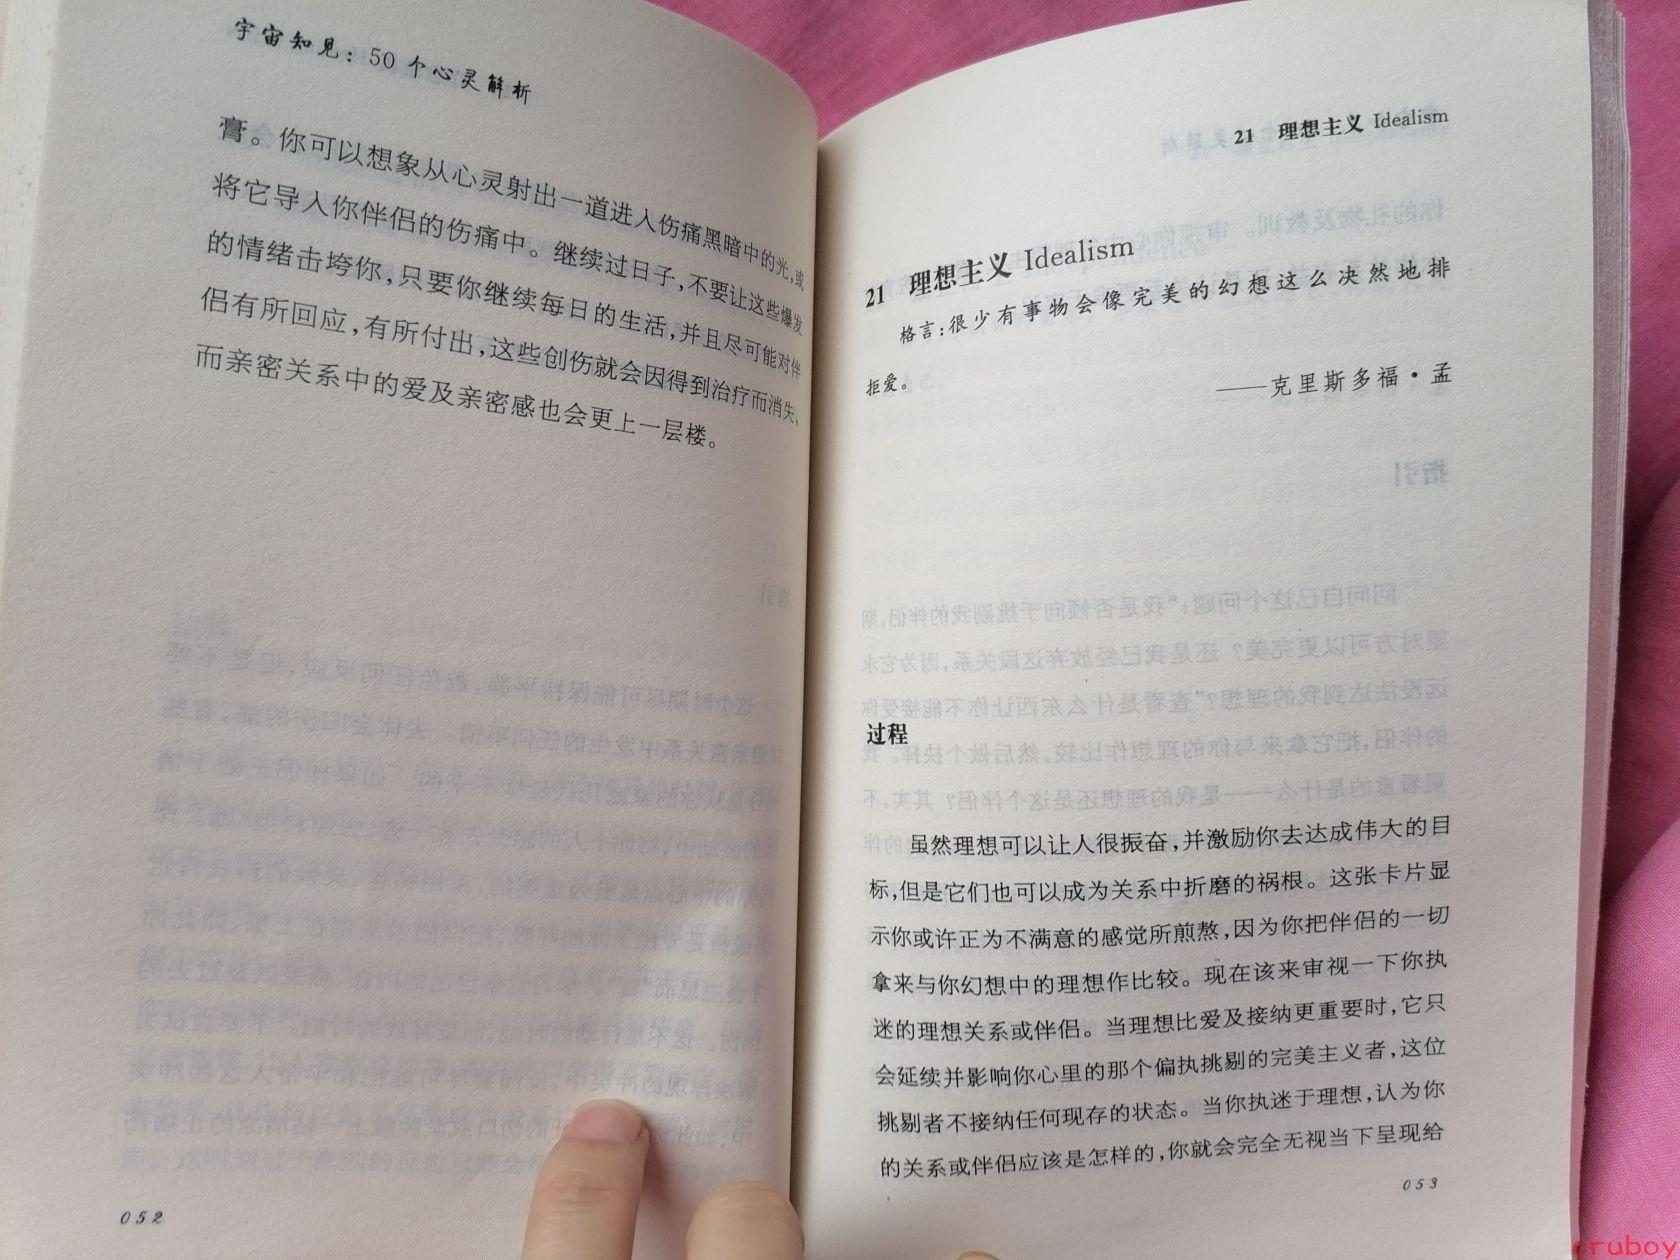 宇宙知见：50个心灵解析
膏。你可以想象从心灵射出一道进入伤痛黑暗中的光,或
将它导入你伴侣的伤痛中。继续过日子,不要让这些爆发
的情绪击垮你,只要你继续每日的生活,并且尽可能对伴
侣有所回应,有所付出,这些创伤就会因得到治疗而消失,
而亲密关系中的爱及亲密感也会更上一层楼。
052
21 理想主义 Idealism
21 理想主义 Idealism
格言:很少有事物会像完美的幻想这么决然地排
拒爱。
——克里斯多福·孟
过程
虽然理想可以让人很振奋,并激励你去达成伟大的目
标,但是它们也可以成为关系中折磨的祸根。这张卡片显
示你或许正为不满意的感觉所煎熬,因为你把伴侣的一切
拿来与你幻想中的理想作比较。现在该来审视一下你执
迷的理想关系或伴侣。当理想比爱及接纳更重要时,它只
会延续并影响你心里的那个偏执挑剔的完美主义者,这位
挑剔者不接纳任何现存的状态。当你执迷于理想,认为你
的关系或伴侣应该是怎样的,你就会完全无视当下呈现给
053
cruboy